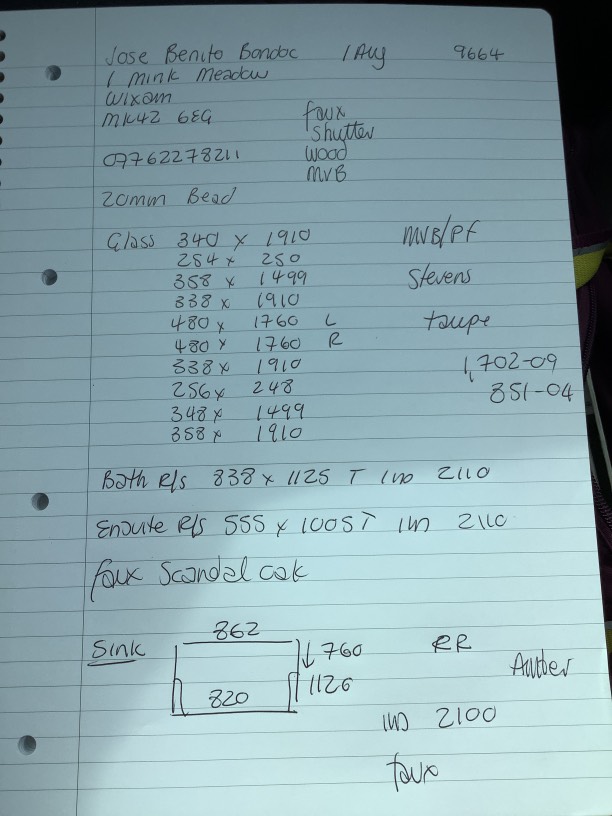 Jose Benito Bondoc 1 Aug 9664
1 Mink Meadow
Wixam
MK42 6EG faux
shutter
07762278211 wood
MVB
20mm Bead
Glass 340 x 1910 MVB/PF
254 x 250
358 x 1499 Stevens
338 x 1910
480 x 1760 L taupe
480 x 1760 R
338 x 1910 1,702-09
256 x 248 851-04
348 x 1499
358 x 1910
Bath R/s 838 x 1125 T 1no 2110
Ensuite R/s 555 x 1005T 1no 2110
faux Scandal oak
862
Sink ↓ 760 RR
820 1126 Amber
1no 2100
faux